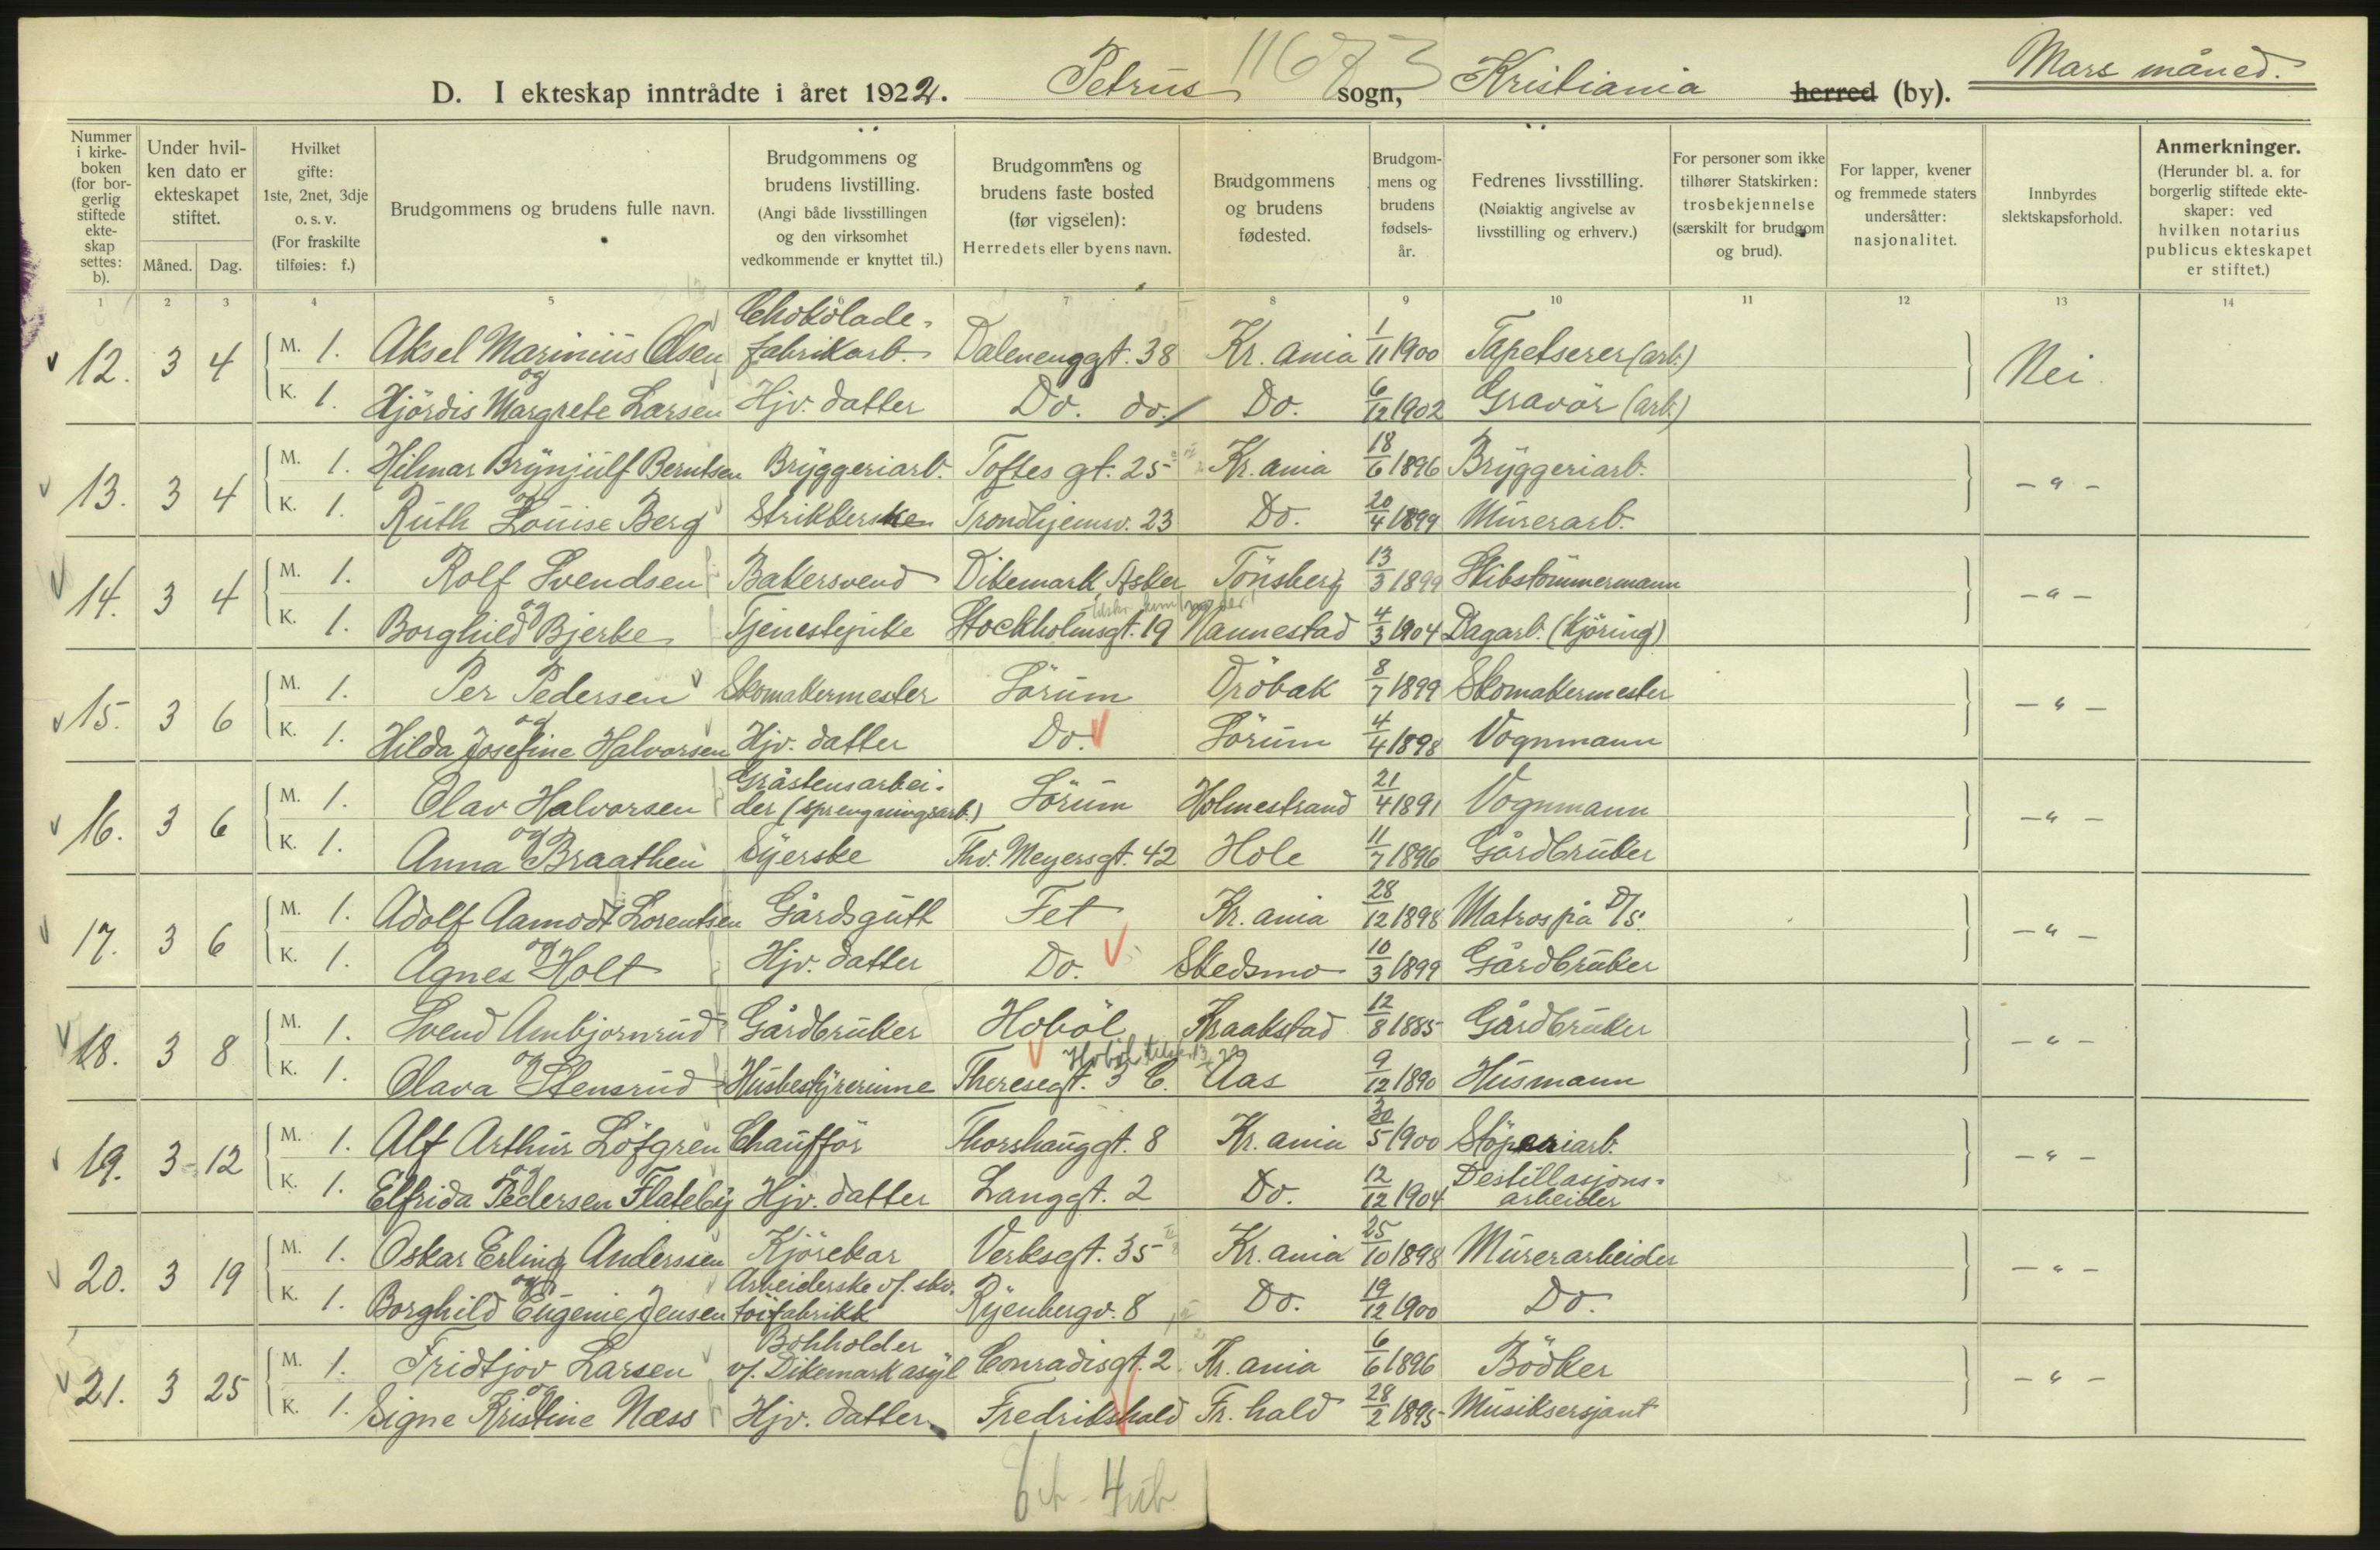 D. I ekteskap inntrådte i året 1922. Petrus sogn, Kristiania herred (by). Mars måned.
Nummer i kirkeboken (for borgerlig stiftede ekteskap settes: b).
Under hvilken dato er ekteskapet stiftet.
Måned. Dag.
Hvilket gifte: 1ste, 2net, 3dje o. s. v. (For fraskilte tilføies: f.)
Brudgommens og brudens fulle navn.
Brudgommens og brudens livstilling. (Angi både livsstillingen og den virksomhet vedkommende er knyttet til.)
Brudgommens og brudens faste bosted (før vigselen): Herredets eller byens navn.
Brudgommens og brudens fødested.
Brudgommens og brudens fødselsår.
Fedrenes livsstilling. (Nøiaktig angivelse av livsstilling og erhverv.)
For personer som ikke tilhører Statskirken: trosbekjennelse (særskilt for brudgom og brud).
For lapper, kvener og fremmede staters undersåtter: nasjonalitet.
Innbyrdes slektskapsforhold.
Anmerkninger. (Herunder bl. a. for borgerlig stiftede ekteskaper: ved hvilken notarius publicus ekteskapet er stiftet.)
1 2 3 4 5 7 8 9 10 11 12 13 14
12. 3 4 M. 1. Aksel Marinius Olsen Chokolade-fabrikarb. Dalenenggt. 38 Kr.ania 1/11 1900 Tapetserer (arb.) Nei.
og
K. 1. Hjördis Margrete Larsen Hjv. datter Do. do. Do. 6/12 1902 Gravör (arb.)
13. 3 4 M. 1. Hilmar Brynjulf Berntsen Bryggeriarb. Toftes gt. 25 Kr.ania 18/6 1896 Bryggeriarb. - " -
og
K. 1. Ruth Louise Berg Strikkerske Trondhjemsv. 23 Do. 20/4 1899 Murerarb.
14. 3 4 M. 1. Rolf Svendsen Bakersvend Dikemark, Asker Tönsberg 13/3 1899 Skibstömmermann - " -
og
K. 1. Borghild Bjerke Tjenestepike Stockholmsgt. 19 Nannestad 4/3 1904 Dagarb. (Kjöring)
15. 3 6 M. 1. Per Pedersen Skomakermester Sörum Dröbak 8/7 1899 Skomakermester - " -
og
K. 1. Hilda Josefine Halvorsen Hjv. datter Do. Sörum 4/4 1898 Vognmann
16. 3 6 M. 1. Olav Halvorsen Gråstensarbeider (sprengningsarb.) Sörum Holmestrand 21/4 1891 Vognmann - " -
og
K. 1. Anna Braathen Syerske Thv. Meyersgt. 42 Hole 11/7 1896 Gårdbruker
17. 3 6 M. 1. Adolf Aamodt Lorentsen Gårdsgutt Fet Kr.ania 28/12 1898 Matros på D/S. - " -
og
K. 1. Agnes Holt Hjv. datter Do. Skedsmo 10/3 1899 Gårdbruker
18. 3 8 M. 1. Svend Ambjornrud Gårdbruker Hoböl Kraakstad 12/8 1885 Gårdbruker - " -
og Hoböl
K. 1. Olava Stensrud Husbestyrerinne Theresegt. 3 C. Aas 9/12 1890 Husmann
19. 3 12 M. 1. Alf Arthur Löfgren Chaufför Thorshauggt. 8 Kr.ania 30/5 1900 Stöperiarb. - " -
og
K. 1. Elfrida Pedersen Flateby Hjv. datter Langgt. 2 Do. 12/12 1904 Destillasjons-arbeider
20. 3 19 M. 1. Oskar Erling Anderssen Kjörekar Verksgt. 35 Kr.ania 25/10 1898 Murerarbeider - " -
og
K. 1. Borghild Eugenie Jensen Arbeiderske v/. skotöifabrikk Ryenbergv. 8 Do. 19/12 1900 Do.
21. 3 25 M. 1. Fridtjov Larsen Bokholder v/. Dikemark asyl Conradisgt. 2 Kr.ania 6/6 1896 Bödker - " -
og
K. 1. Signe Kristine Næss Hjv. datter Fredrikshald Fr. hald 28/2 1895 Musiksersjant